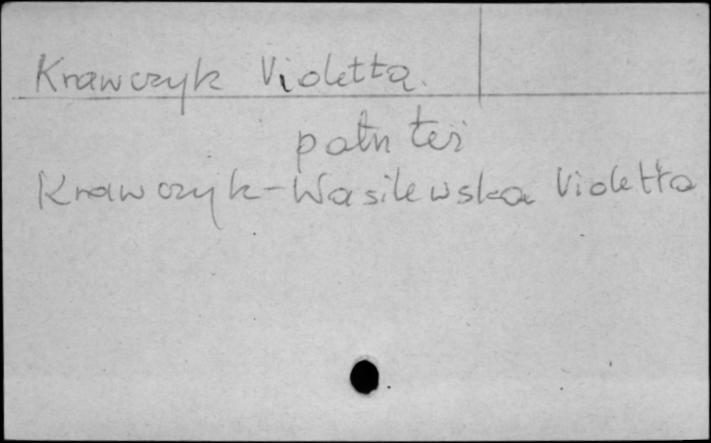 Krawczyk Violetta.
patrz też
Krawczyk-Wasilewska Violetta